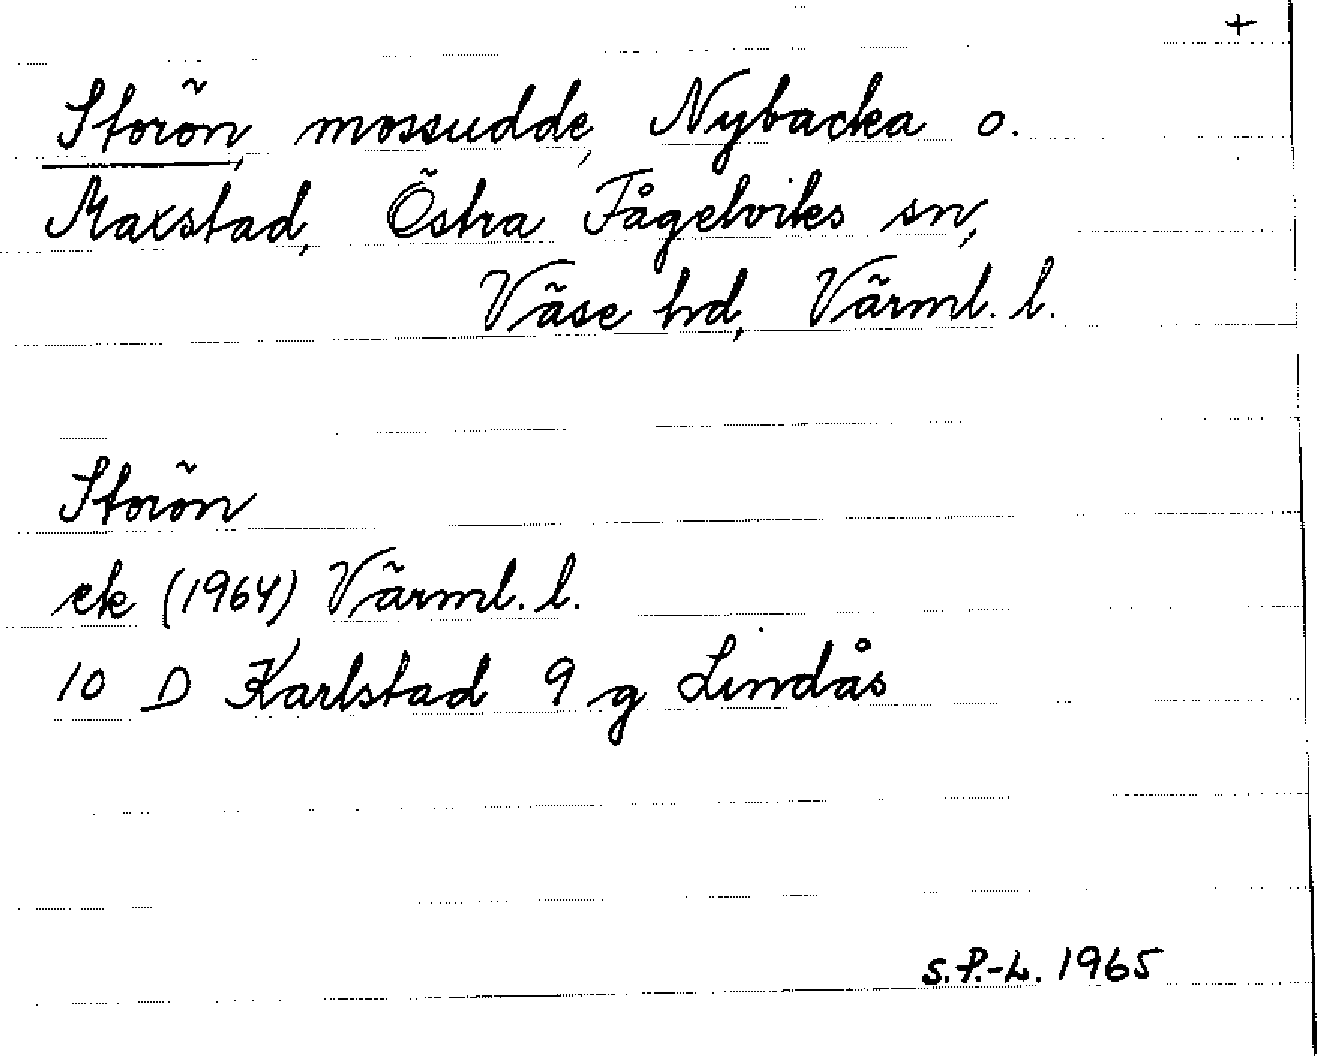 +
Storön, mossudde, Nybacka o.
Maxstad, Östra Fågelviks sn,
Väse hd, Värml. l.
Storön
ek (1964) Värml. l.
10 D Karlstad 9 g Lindås
S.P.-L. 1965